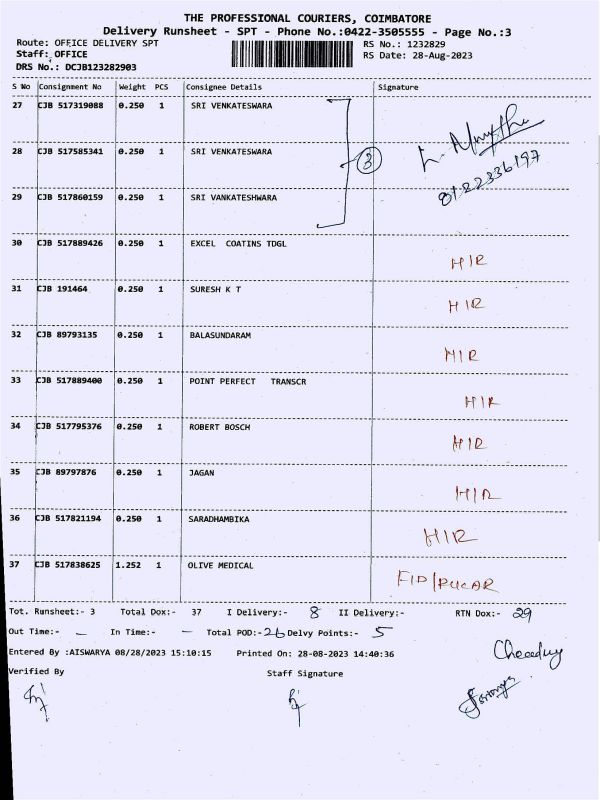 THE PROFESSIONAL COURIERS, COIMBATORE
Delivery Runsheet - SPT - Phone No.:0422-3505555 - Page No.:3
Route: OFFICE DELIVERY SPT RS No.: 1232829
Staff: OFFICE RS Date: 28-Aug-2023
DRS No.: DCJB123282903
S No Consignment No Weight PCS Consignee Details Signature
27 CJB 517319088 0.250 1 SRI VENKATESWARA
28 CJB 517585341 0.250 1 SRI VENKATESWARA 3
8122336197
29 CJB 517860159 0.250 1 SRI VANKATESHWARA
30 CJB 517889426 0.250 1 EXCEL COATINS TDGL H/R
31 CJB 191464 0.250 1 SURESH K T H/R
32 CJB 89793135 0.250 1 BALASUNDARAM H/R
33 CJB 517889400 0.250 1 POINT PERFECT TRANSCR H/R
34 CJB 517795376 0.250 1 ROBERT BOSCH H/R
35 CJB 89797876 0.250 1 JAGAN H/R
36 CJB 517821194 0.250 1 SARADHAMBIKA H/R
37 CJB 517838625 1.252 1 OLIVE MEDICAL
Tot. Runsheet:- 3 Total Dox:- 37 I Delivery:- 8 II Delivery:- RTN Dox:- 29
Out Time:- - In Time:- - Total POD:-26 Delvy Points:- 5
Entered By :AISWARYA 08/28/2023 15:10:15 Printed On: 28-08-2023 14:40:36
Verified By Staff Signature